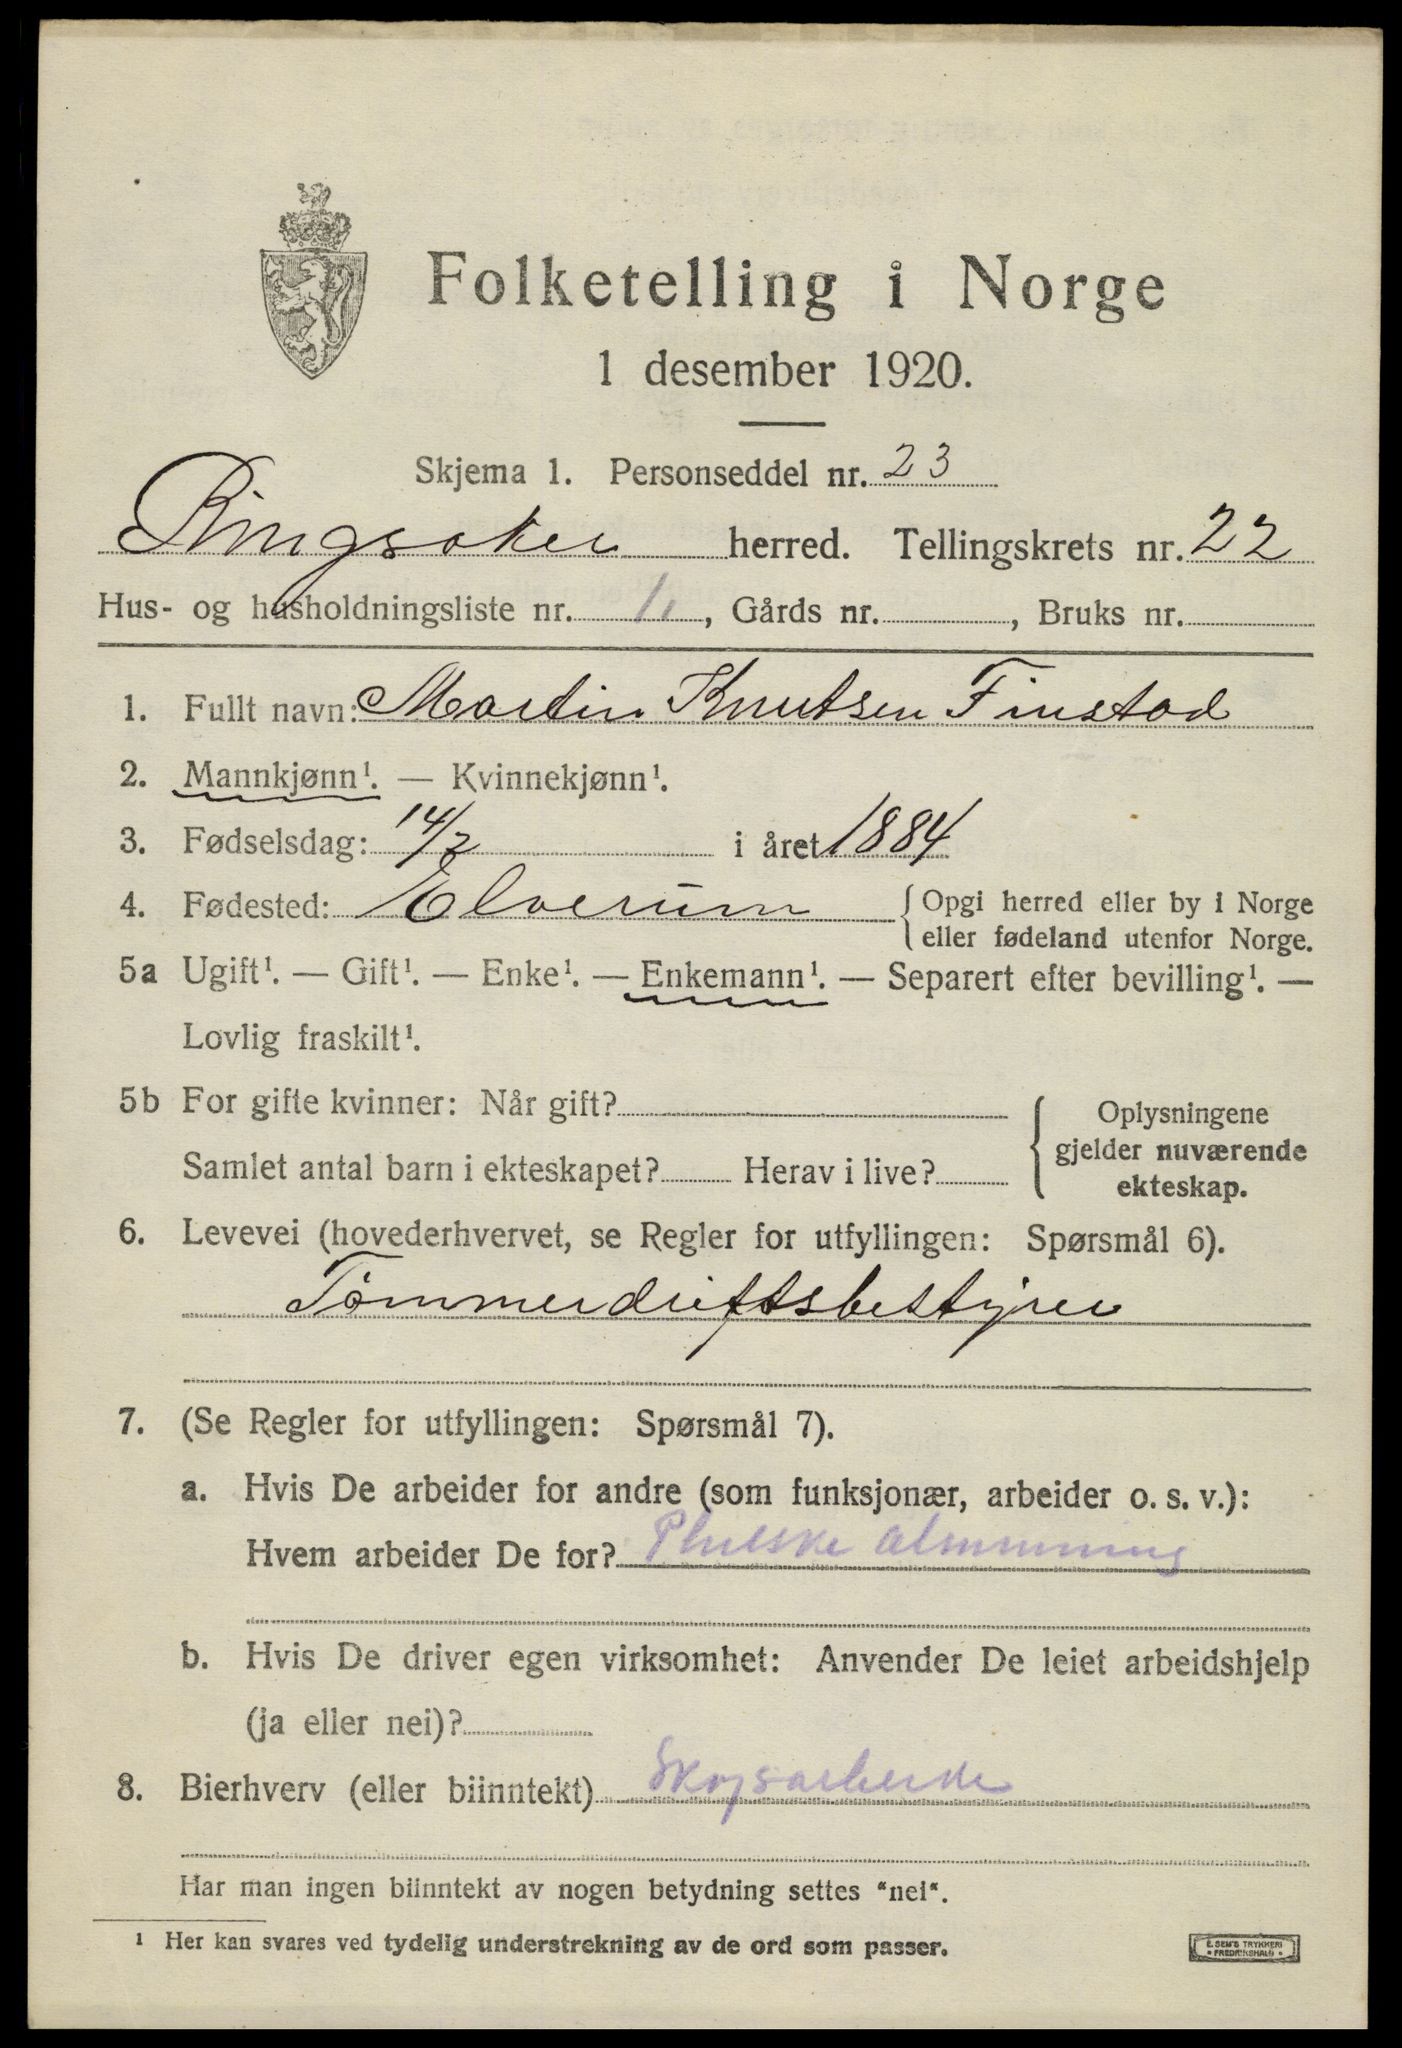 Folketelling i Norge
1 desember 1920.
Skjema 1. Personseddel nr. 23
Ringsaker herred. Tellingskrets nr. 22
Hus- og husholdningsliste nr. , Gårds nr. , Bruks nr.
1. Fullt navn: Martin Knutsen Finstad
2. Mannkjønn¹. — Kvinnekjønn¹.
3. Fødselsdag: 14/2 i året 1884
4. Fødested: Elverum { Opgi herred eller by i Norge
eller fødeland utenfor Norge.
5a Ugift¹. — Gift¹. — Enke¹. — Enkemann¹. — Separert efter bevilling¹. —
Lovlig fraskilt¹.
5b For gifte kvinner: Når gift? { Oplysningene
gjelder nuværende
Samlet antal barn i ekteskapet? Herav i live?
ekteskap.
6. Levevei (hovederhvervet, se Regler for utfyllingen: Spørsmål 6).
Tømmerdriftsbestyrer
7. (Se Regler for utfyllingen: Spørsmål 7).
a. Hvis De arbeider for andre (som funksjonær, arbeider o. s. v.):
Hvem arbeider De for? almenning
b. Hvis De driver egen virksomhet: Anvender De leiet arbeidshjelp
(ja eller nei)?
8. Bierhverv (eller biinntekt) Skogsarbeide
Har man ingen biinntekt av nogen betydning settes "nei".
¹ Her kan svares ved tydelig understrekning av de ord som passer.
E. SEM'S TRYKKERI
• FREDRIKSHALD •